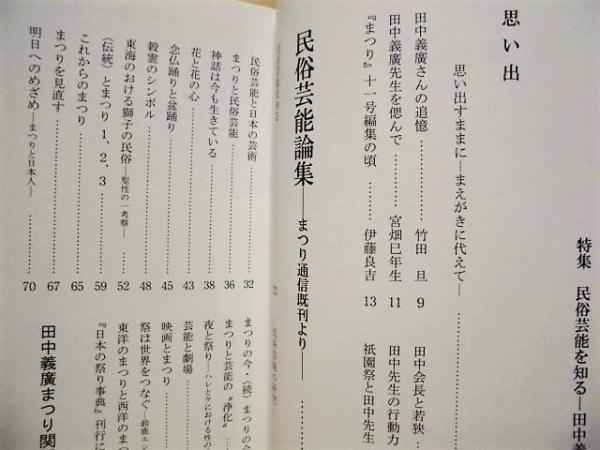 特集 民俗芸能を知る―田中義
思い出
思い出すままに―まえがきに代えて―
田中義廣さんの追憶 竹田 旦 9
田中義廣先生を偲んで 宮畑巳年生 11
『まつり』十一号編集の頃 伊藤良吉 13
田中会長と若狭
田中先生の行動力
祇園祭と田中先生
民俗芸能論集―まつり通信既刊より―
民俗芸能と日本の芸術 32
まつりと民俗芸能 36
神話は今も生きている 38
花と花の心 43
念仏踊りと盆踊り 45
穀霊のシンボル 48
東海のおける獅子の民俗―聖性の一考察― 52
〈伝統〉とまつり 1、2、3 59
これからのまつり 65
まつりを見直す 67
明日へのめざめ―まつりと日本人― 70
まつりの今・〈続〉まつりの今
まつりと芸能の〝浄化〟
夜と祭り―ハレとケにおける性の
芸能と劇場
映画とまつり
祭は世界をつなぐ―鈴鹿エン
東洋のまつりと西洋のまつ
『日本の祭り事典』刊行に
田中義廣まつり関